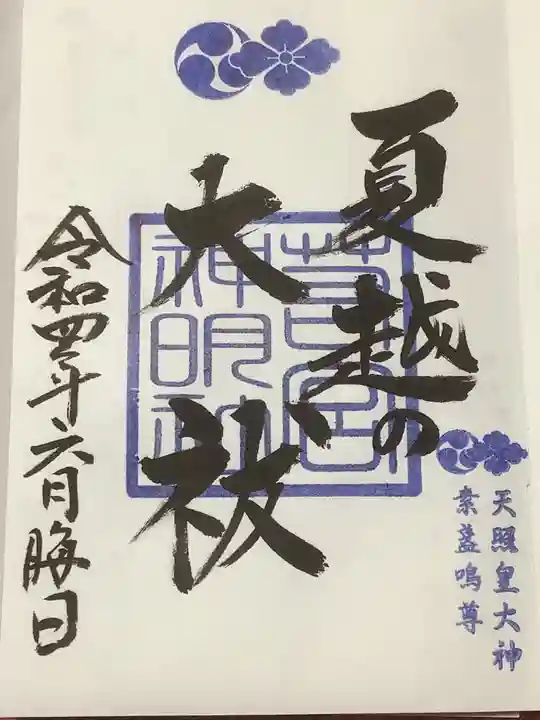 夏越の
大祓
令和四年六月晦日
天照皇大神
素盞鳴尊
神明社